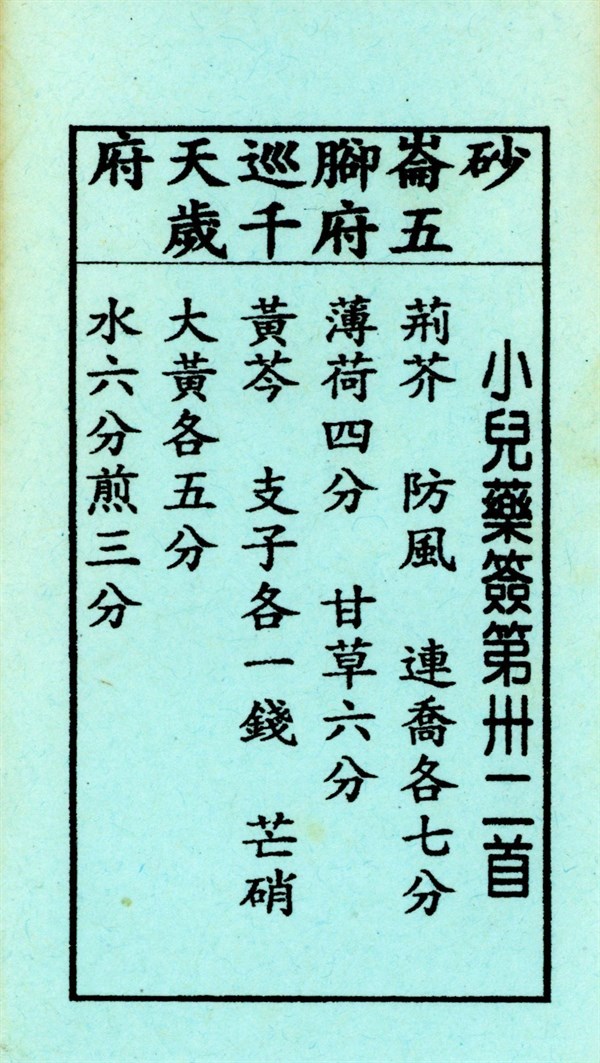 砂崙腳巡天府
五府千歲
小兒藥簽第卅二首
荊芥　防風　連喬各七分
薄荷四分　甘草六分
黃芩　支子各一錢　芒硝
大黃各五分
水六分煎三分